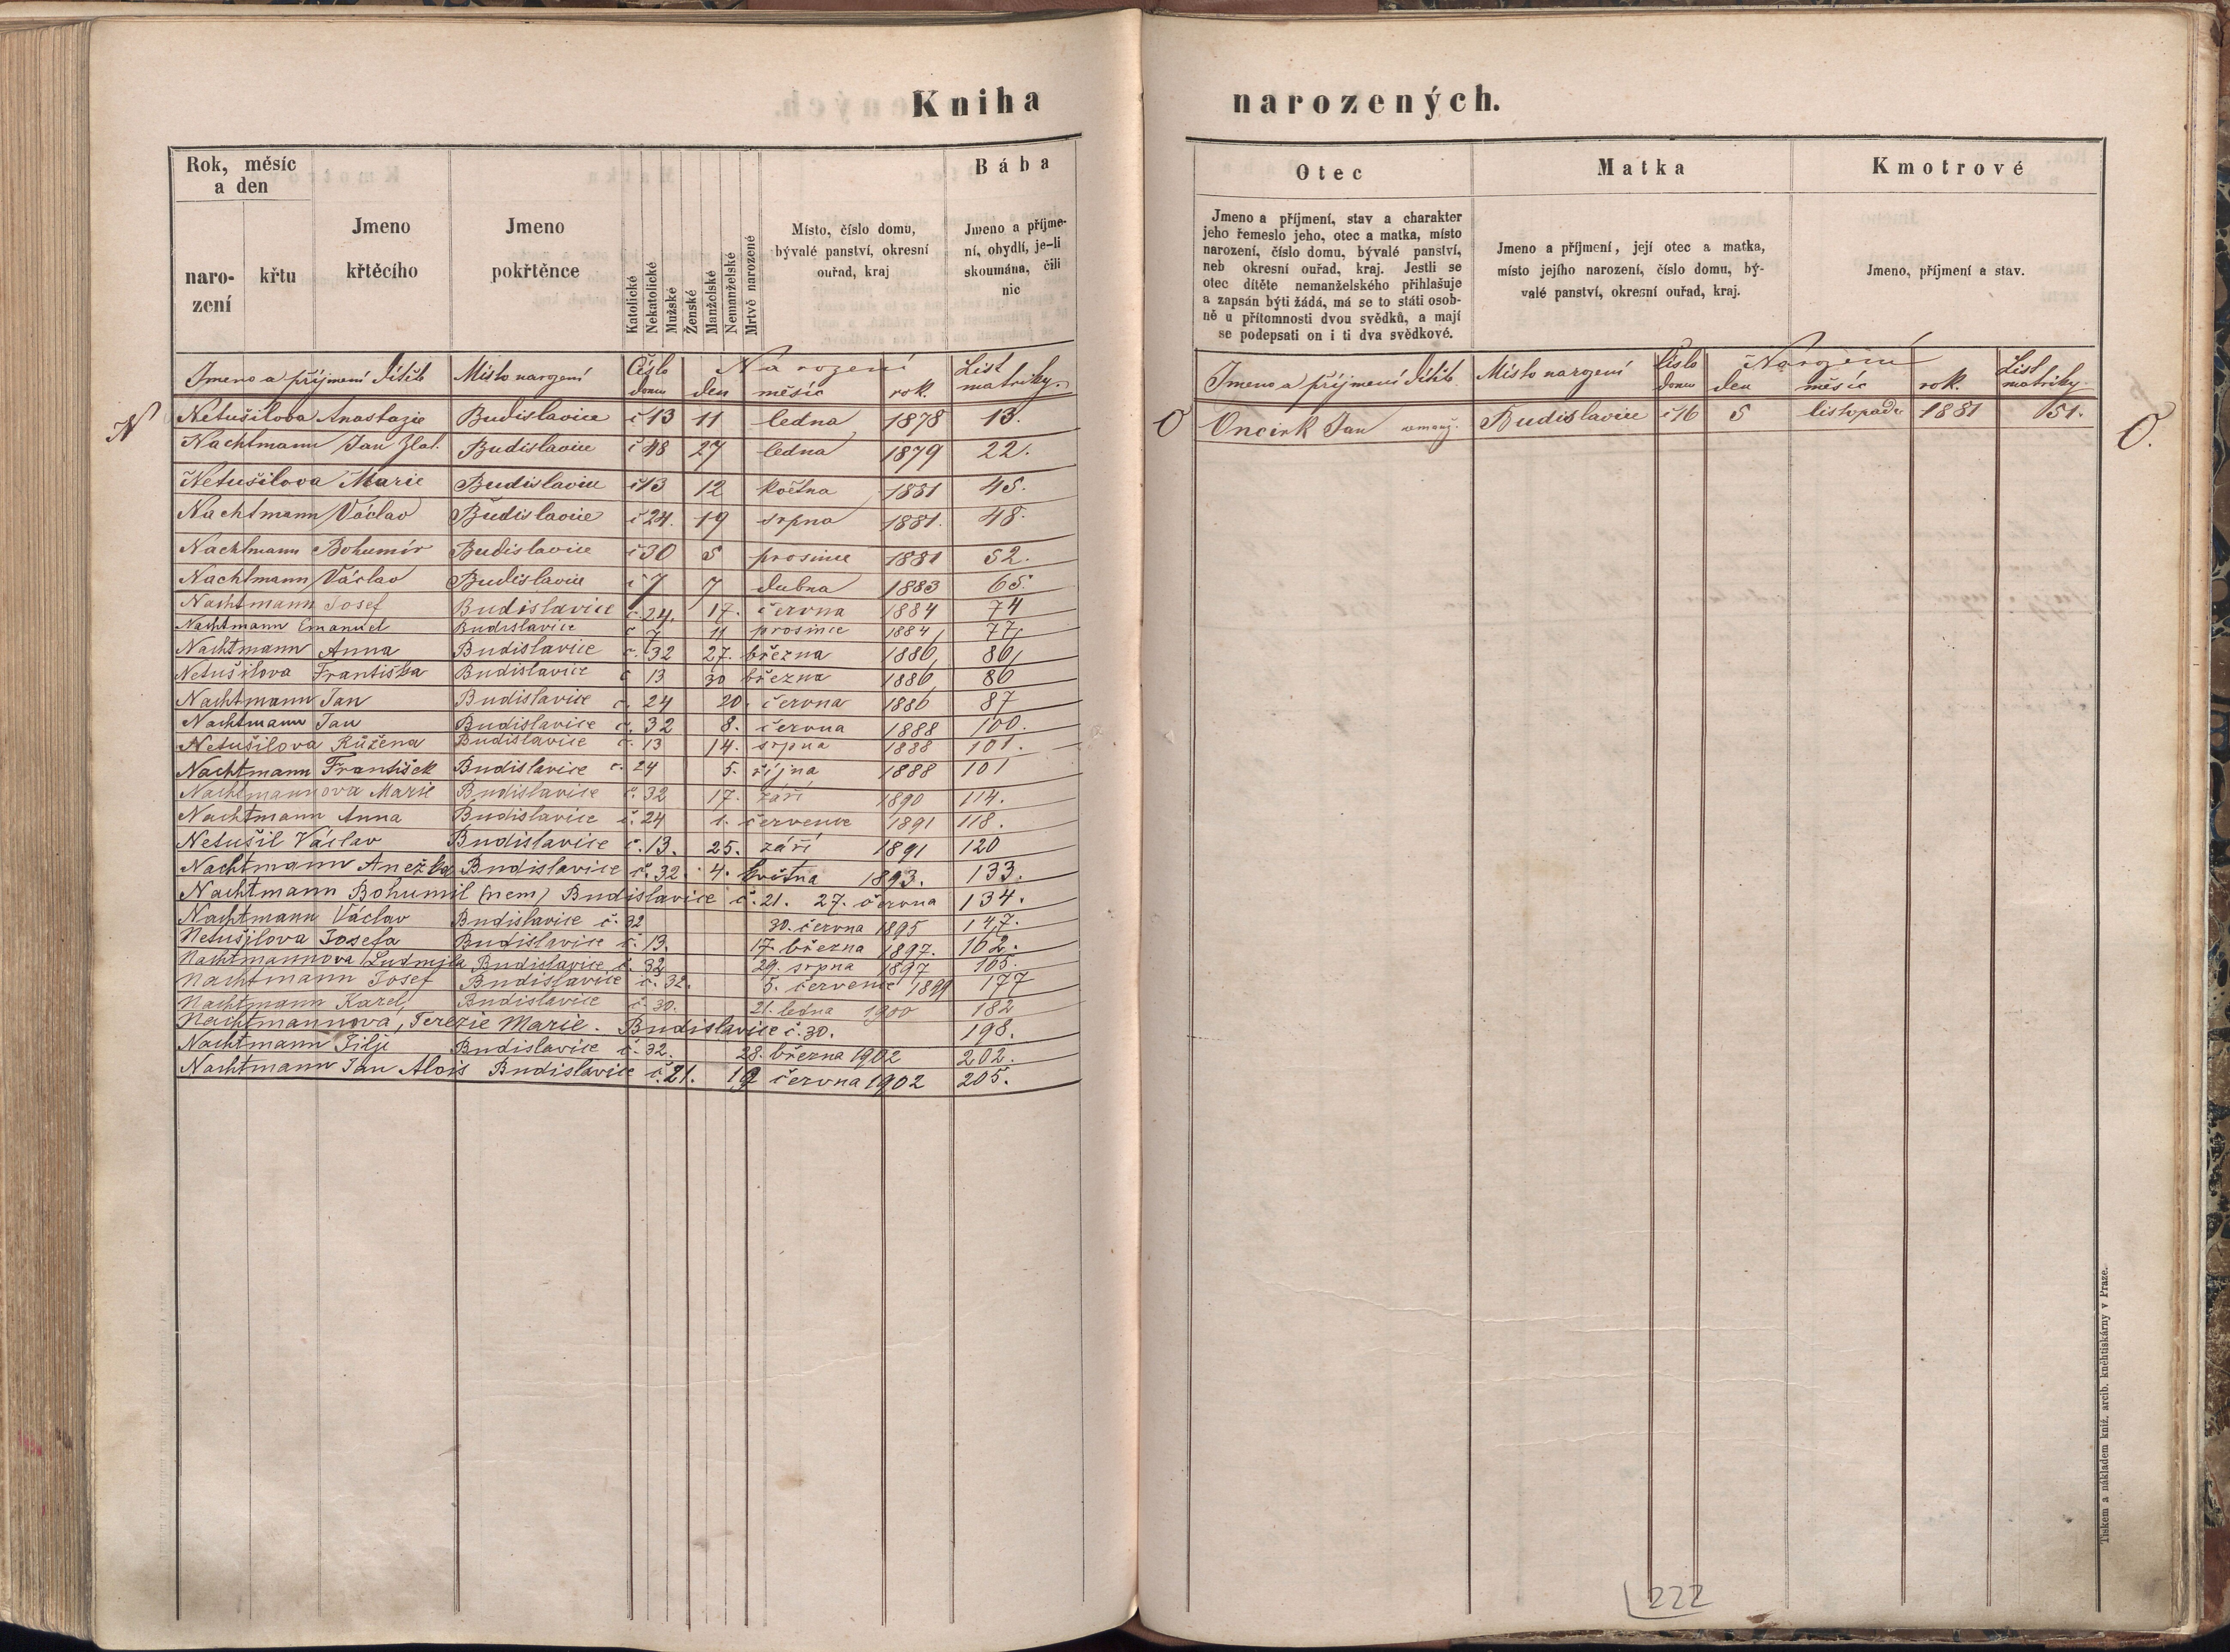 Kniha
Rok, měsíc a den
naro-
zení
křtu
Jmeno
křtěcího
Jmeno
pokřtěnce
Katolické
Nekatolické
Mužské
Ženské
Manželské
Nemanželské
Mrtvě narozené
Místo, číslo domu,
bývalé panství, okresní
ouřad, kraj
Bába
Jmeno a příjme-
ní, obydlí, je-li
skoumána, čili
nic
Jmeno a příjmení dítěte Místo narození Číslo domu Narození den měsíc rok. List matriky.
N Netušilova Anastazie Budislavice č 13 11 ledna 1878 13.
Nachtmann Jan Zlat. Budislavice č 48 27 ledna 1879 22.
Netušilova Marie Budislavice č 13 12 května 1881 45.
Nachtmann Václav Budislavice č 24. 19 srpna 1881. 48.
Nachtmann Bohumír Budislavice č 30 5 prosince 1881 52.
Nachtmann Václav Budislavice č 7 7 dubna 1883 65.
Nachtmann Josef Budislavice č. 24. 17. června 1884 74
Nachtmann Emanuel Budislavice č 7 11 prosince 1884 77
Nachtmann Anna Budislavice č. 32 27. března 1886 86
Netušilova Františka Budislavice č 13 30 března 1886 86
Nachtmann Jan Budislavice č. 24 20. června 1886 87
Nachtmann Jan Budislavice č. 32 8. června 1888 100.
Netušilova Růžena Budislavice č. 13 14. srpna 1888 101.
Nachtmann František Budislavice č. 24 5. října 1888 101
Nachtmannova Marie Budislavice č. 32 17. září 1890 114.
Nachtmann Anna Budislavice č. 24 1. července 1891 118.
Netušil Václav Budislavice č. 13. 25. září 1891 120
Nachtmann Anežka Budislavice č. 32. 4. května 1893. 133.
Nachtmann Bohumil (nem) Budislavice č. 21. 27. června 134.
Nachtmann Václav Budislavice č. 32 30. června 1895 147.
Netušilova Josefa Budislavice č. 13. 17. března 1897. 162.
Nachtmannova Ludmila Budislavice č. 32 29. srpna 1897 165.
Nachtmann Josef Budislavice č. 32. 5. července 1899 177
Nachtmann Karel Budislavice č. 30. 21. ledna 1900 182
Nachtmannova, Terezie Marie. Budislavice č. 30. 198.
Nachtmann Jilji Budislavice č. 32. 28. března 1902 202.
Nachtmann Jan Alois Budislavice č. 21. 19 června 1902 205.
narozených.
Otec
Jmeno a příjmení, stav a charakter
jeho řemeslo jeho, otec a matka, místo
narození, číslo domu, bývalé panství,
neb okresní ouřad, kraj. Jestli se
otec dítěte nemanželského přihlašuje
a zapsán býti žádá, má se to státi osob-
ně u přítomnosti dvou svědků, a mají
se podepsati on i ti dva svědkové.
Matka
Jmeno a příjmení, její otec a matka,
místo jejího narození, číslo domu, bý-
valé panství, okresní ouřad, kraj.
Kmotrové
Jmeno, příjmení a stav.
Jmeno a příjmení dítěte. Místo narození Číslo domu Narození den měsíc rok. List matriky.
O Oncirk Jan nemanž. Budislavice č 16 5 listopadu 1881 51. O.
222
Tiskem a nákladem kníž. arcib. kněhtiskárny v Praze.